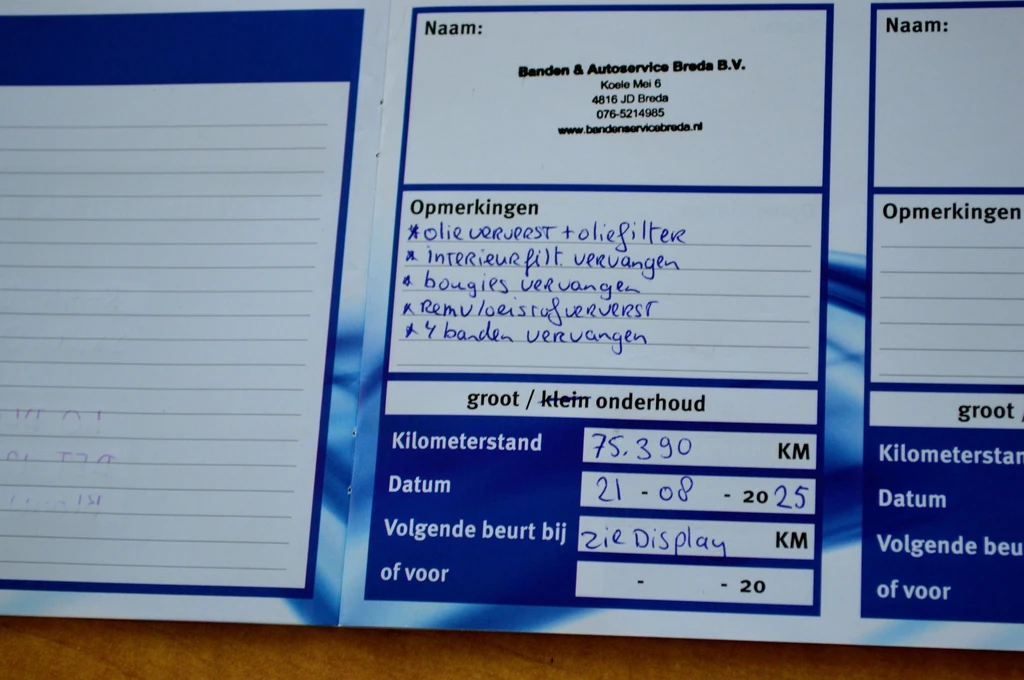 Naam:
Banden & Autoservice Breda B.V.
Koele Mei 6
4816 JD Breda
076-5214985
www.bandenservicebreda.nl
Opmerkingen
* olie ververst + oliefilter
* interieurfilt. vervangen
* bougies vervangen
* Remvloeistof ververst
* 4 banden vervangen
groot / klein onderhoud
Kilometerstand 75.390 KM
Datum 21 - 08 - 2025
Volgende beurt bij zie Display KM
of voor - - 20
Naam:
Opmerkingen
groot /
Kilometerstan
Datum
Volgende beu
of voor